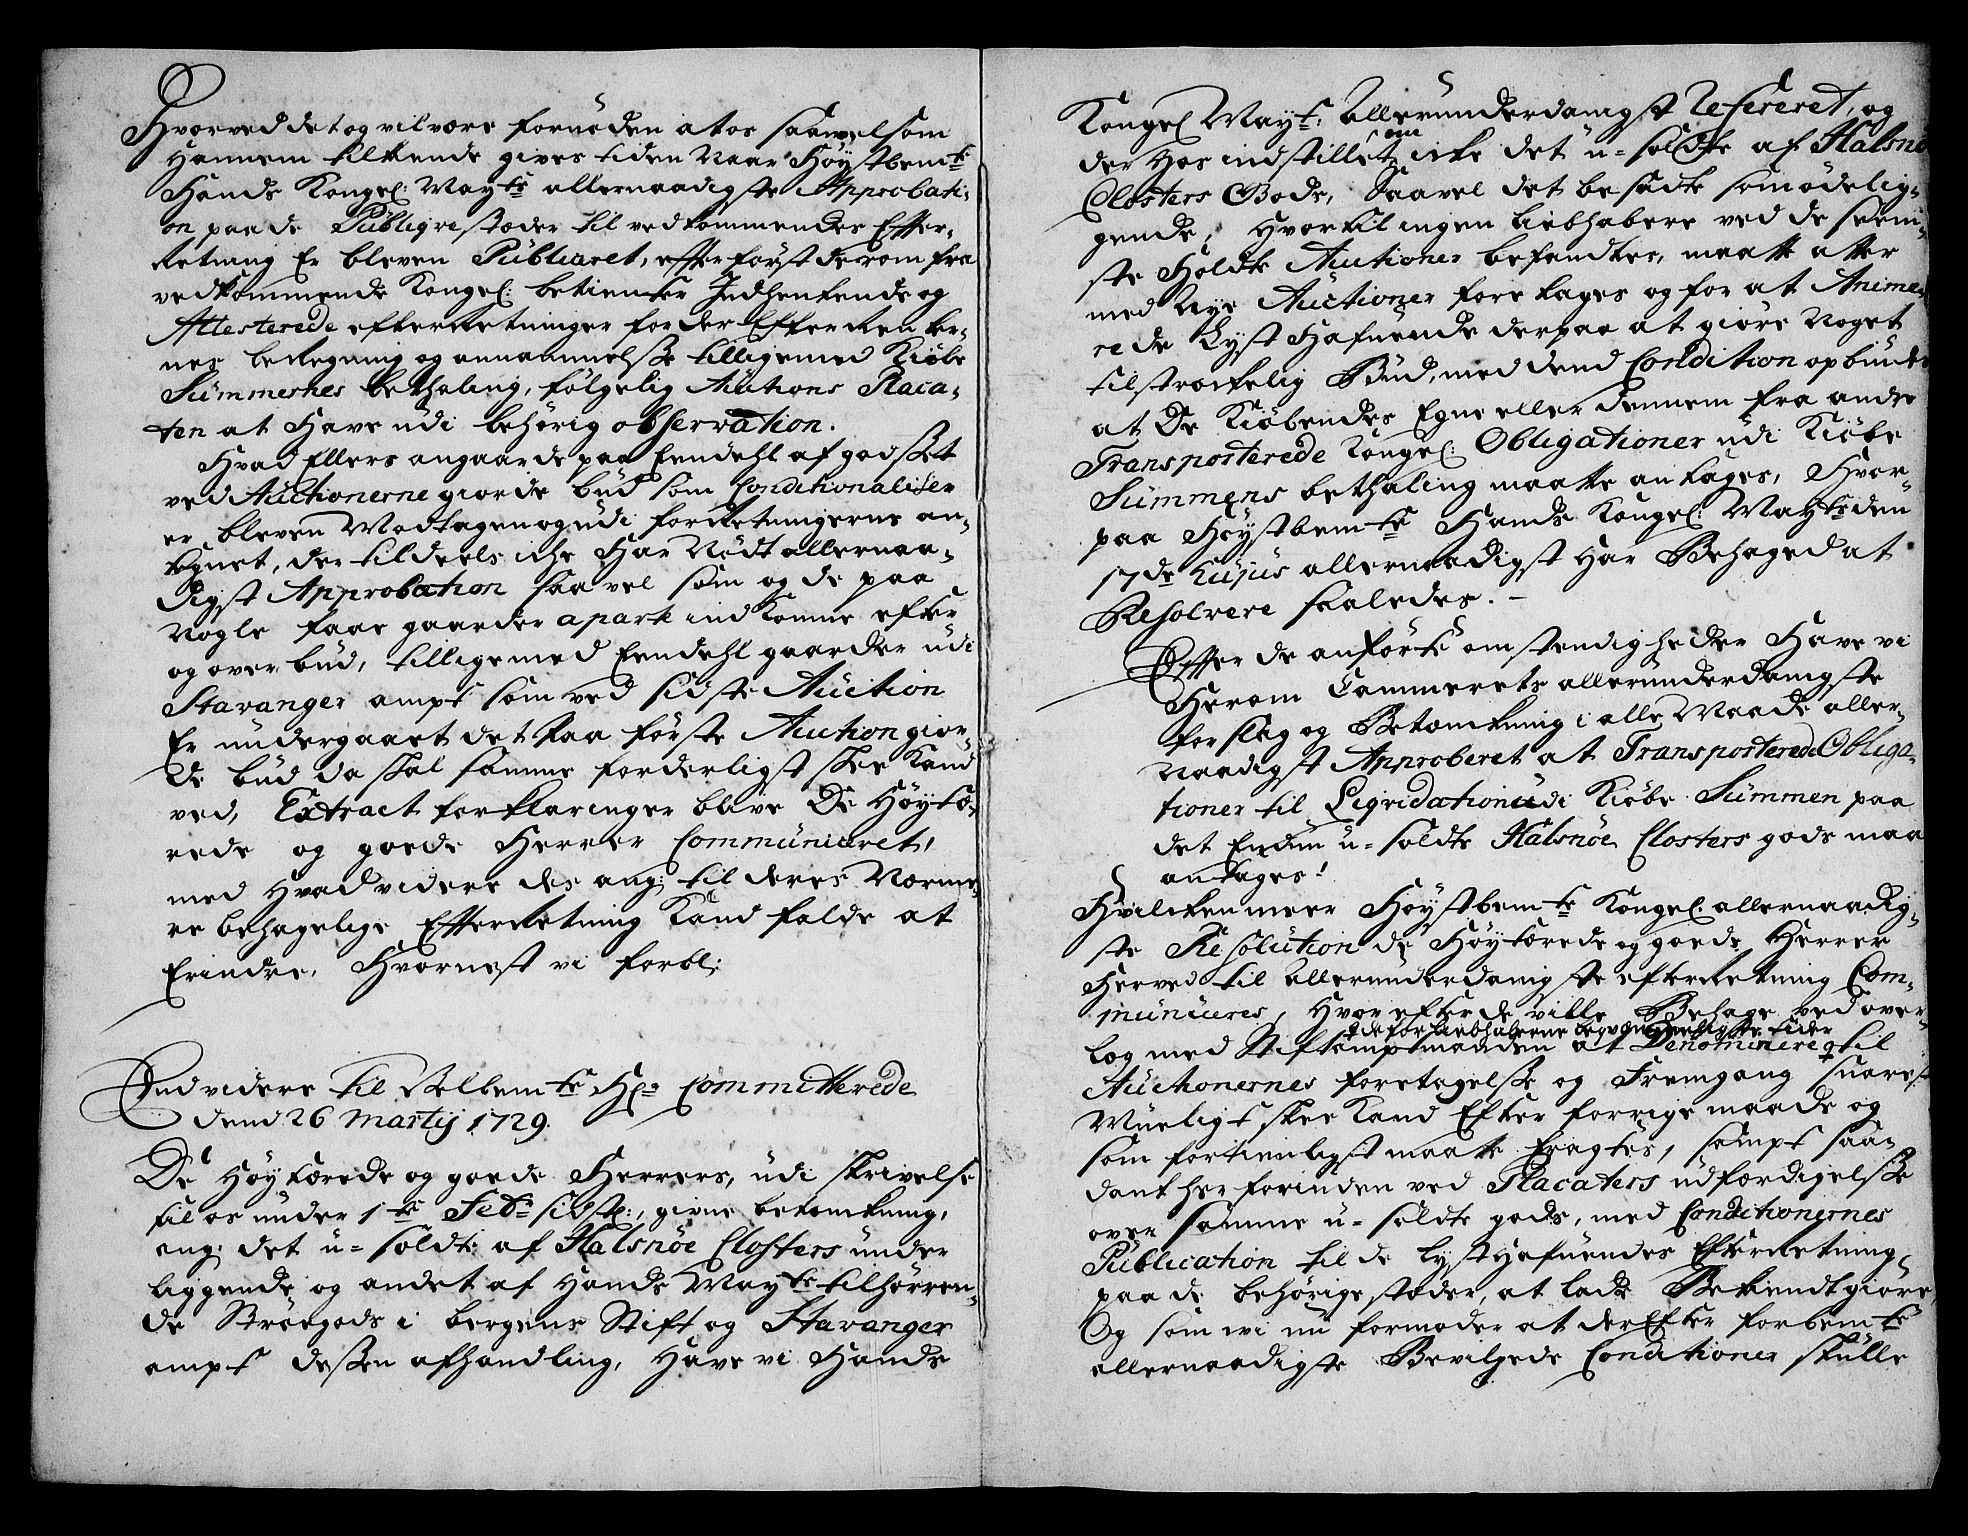 Hvorved det og vil være fornøden at os saavelsom
Hannem tilkende gives tiden naar Høystbemte
Hands Kongel: Mayts allernaadigste Approbati-
on paa de Publiqve stæder til vedkommendes Effter-
retning Er bleven Publiceret, efter først derom fra
vedkommende Kongel: betienter Indhentende og
Attesterede efterretninger for der Efter Renter-
nes beregning og annammelsse tilligemed Kiøbe
Summernes bethaling, følgelig Auctions Placa-
ten at Have udi behørig observation.
Hvad Ellers angaar de paa Eendehl af godsset
ved Auctionerne giorde bud som Conditionaliter
er bleven Modtagen og udi forretningerne an-
tegnet, der tildeels iche Har Nødt allernaa-
digst Approbation saavel som og de paa
Nogle faae gaarder aparte indkomne efter
og overbud, tilligemed Eendehl gaarder udi
Stavanger ampt som ved sidste Auction
Er undergaaet det paa første Auction gior-
de bud da skal samme forderligst skee Kand
ved, Extract forklaringer blive De Høyædle
rede og goede Herrer Communiceret,
med Hvad videre des ang: til deres Nærme-
re behagelige Effterretning Kand falde at
Erindre, Hvornest vi forbl:
Endvidere til Velbemte Hr: Committerede
dend 26 Martij 1729.
De Høyærede og goede Herrers, udi skrivelse
til os under 1te Febr: sidstl:, givne betænkning,
ang: det u-soldte af Halsnøe Closters under
liggende og andet af Hands Mayts tilhørren-
de Strøegods i Bergens Stift og Stavanger
ampt dessen afhandling, Have vi Hands
Kongel Mayts: Allerunderdanigst Refereret, og
der Hos indstillet, om icke det u-soldte af Halsnøe
Closters Gods, Saavel det besadte som ødelig-
gende, Hvortil ingen Liebhabere ved de seeni-
ste Holdte Auctioner befandtes, maatte atter
med Nye Auctioner foretages og for at Anime-
re de Lyst Hafuende derpaa at giøre Noget
tilstræckelig Bud, med dend Condition opbudes
at De Kiøbendes Egne eller dennem fra andre
Transporterede Kongel: Obligationer udi Kiøbe
Summens bethaling maatte antages, Hvor-
paa Høystbemte Hands Kongel: Mayts den
17de Hujus allernaadigst Har Behaged at
Resolvere saaledes. -
Effter de anførte omstendigheder Have vi
Herom Cammerets allerunderdanigste
forslag og Betænkning i alle Maade aller-
Naadigst Approberet at Transporterede Obliga-
tioner til Liqvidation udi Kiøbe Summen paa
det Endnu u-soldte Halsnøe Closters gods maa
antages!
Hvilcken meer Høystbemte Kongel. allernaadig-
ste Resolution de Høyærede og goede Herrer
Herved til allerunderdanigste efterretning Com-
municeres, Hvorefter de ville Behage ved over-
de for Liebhaberne beqvemmeligste tider
læg med Stiftamptmanden at Denominere til
Auctionernes foretagelsse og Fremgang snarest
Mueligt skee Kand Efter forrige maade og
som fortienligst maatte Eragtes, sampt saa-
dant her forinden ved Placaters udfærdigelsse
over samme u-soldte gods, med Conditionernes
Publication til de Lyst Hafuendes Efterretning
paa de behørige stæder, at lade Bekiendtgiøre,
Og som vi nu formoder at der Efter forbemte
allernaadigste Bevilgede Conditioner skulle